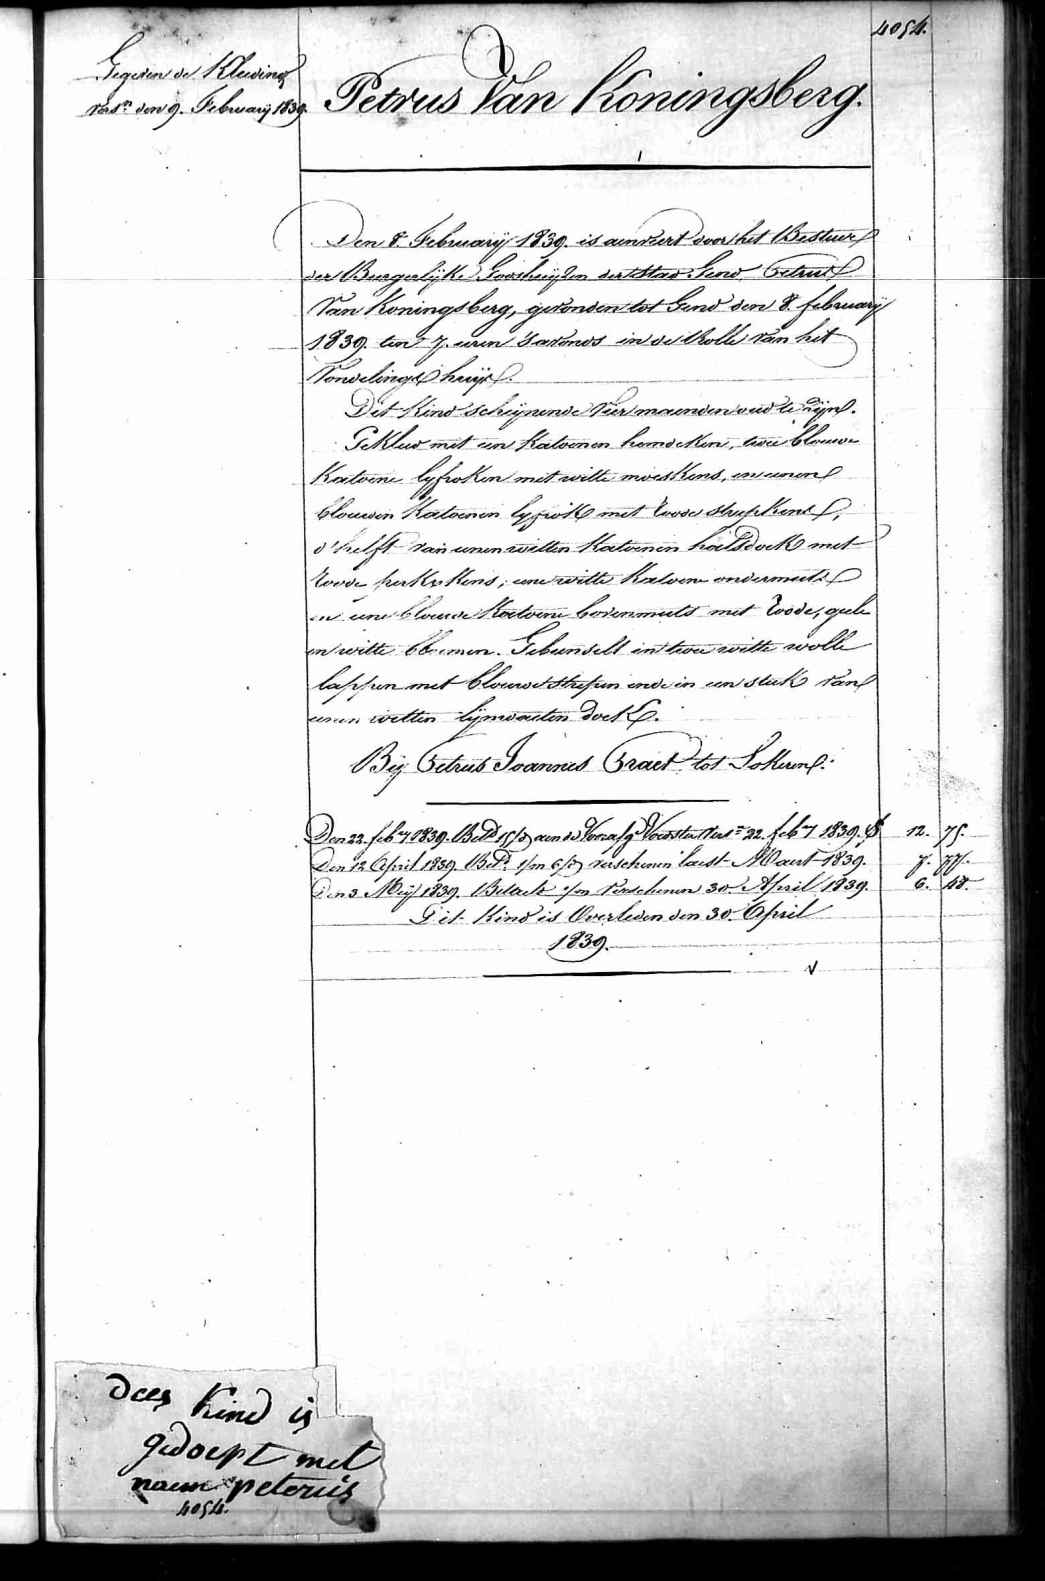 4054.
Gegeven de Kleeding
van den 9. February 1839.
Petrus Van Koningsberg.
Den 8. February 1839. is aenveert door het Bestuer
der Burgerlyke Godshuyzen der Stad Gend, Petrus
Van Koningsberg, gevonden tot Gend den 8. february
1839. ten 7. uren 's avonds in de Rolle van het
Vondelings huys.
Dit Kind schynende vier maenden oud te zyn.
Gekleed met een Katoenen hemdeken, twee blauwe
Katoene lyfroken met witte moeskens, en eenen
blauwen Katoenen lyfrok met roode strepkens,
d'helft van eenen witten Katoenen halsdoek met
roode perkskens; eene witte Katoene ondermuts
en eene blauwe Katoene bovenmuts met roode, geele
en witte bloemen. Gebunselt in twee witte wolle
lappen met blauwe strepen ende in een stuk van
eenen witten lynwaeten doek.
By Petrus Joannes Praet tot Lokeren.
Den 22. feb.ry 1839. Bet.d aen de 22. feb.ry 1839. 12. 75.
Den 12 April 1839. Bet.d verschenen laest Maert 1839. 7. 77.
Den 3 Mey 1839. Betaelt verschenen 30. April 1839. 6. 48.
Dit Kind is Overleden den 30. April
1839.
dees kind is
gedoept met
naem peterus
4054.